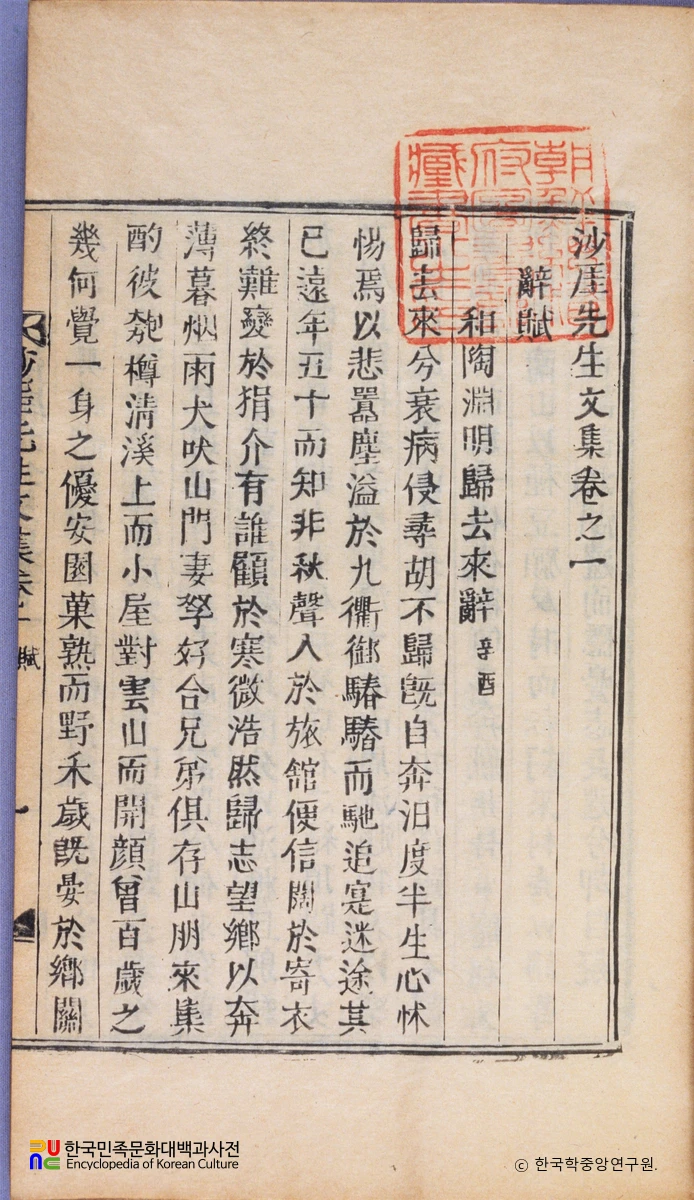 沙厓先生文集卷之一
辭賦
和陶淵明歸去來辭 辛酉
歸去來兮衰病侵尋胡不歸旣自奔汨度半生心怵
惕焉以悲囂塵溢於九衢御騞騞而馳追寔迷途其
已遠年五十而知非秋聲入於旅舘便信闊於寄衣
終難變於狷介有誰顧於寒微浩然歸志望鄉以奔
薄暮烟雨犬吠山門妻孥好合兄弟俱存山朋來集
酌彼匏樽淸溪上而小屋對雲山而開顔曾百歲之
幾何覺一身之優安園菓熟而野禾歲旣晏於鄉關
沙厓先生文集卷一 賦
一
한국민족문화대백과사전
Encyclopedia of Korean Culture
ⓒ 한국학중앙연구원.